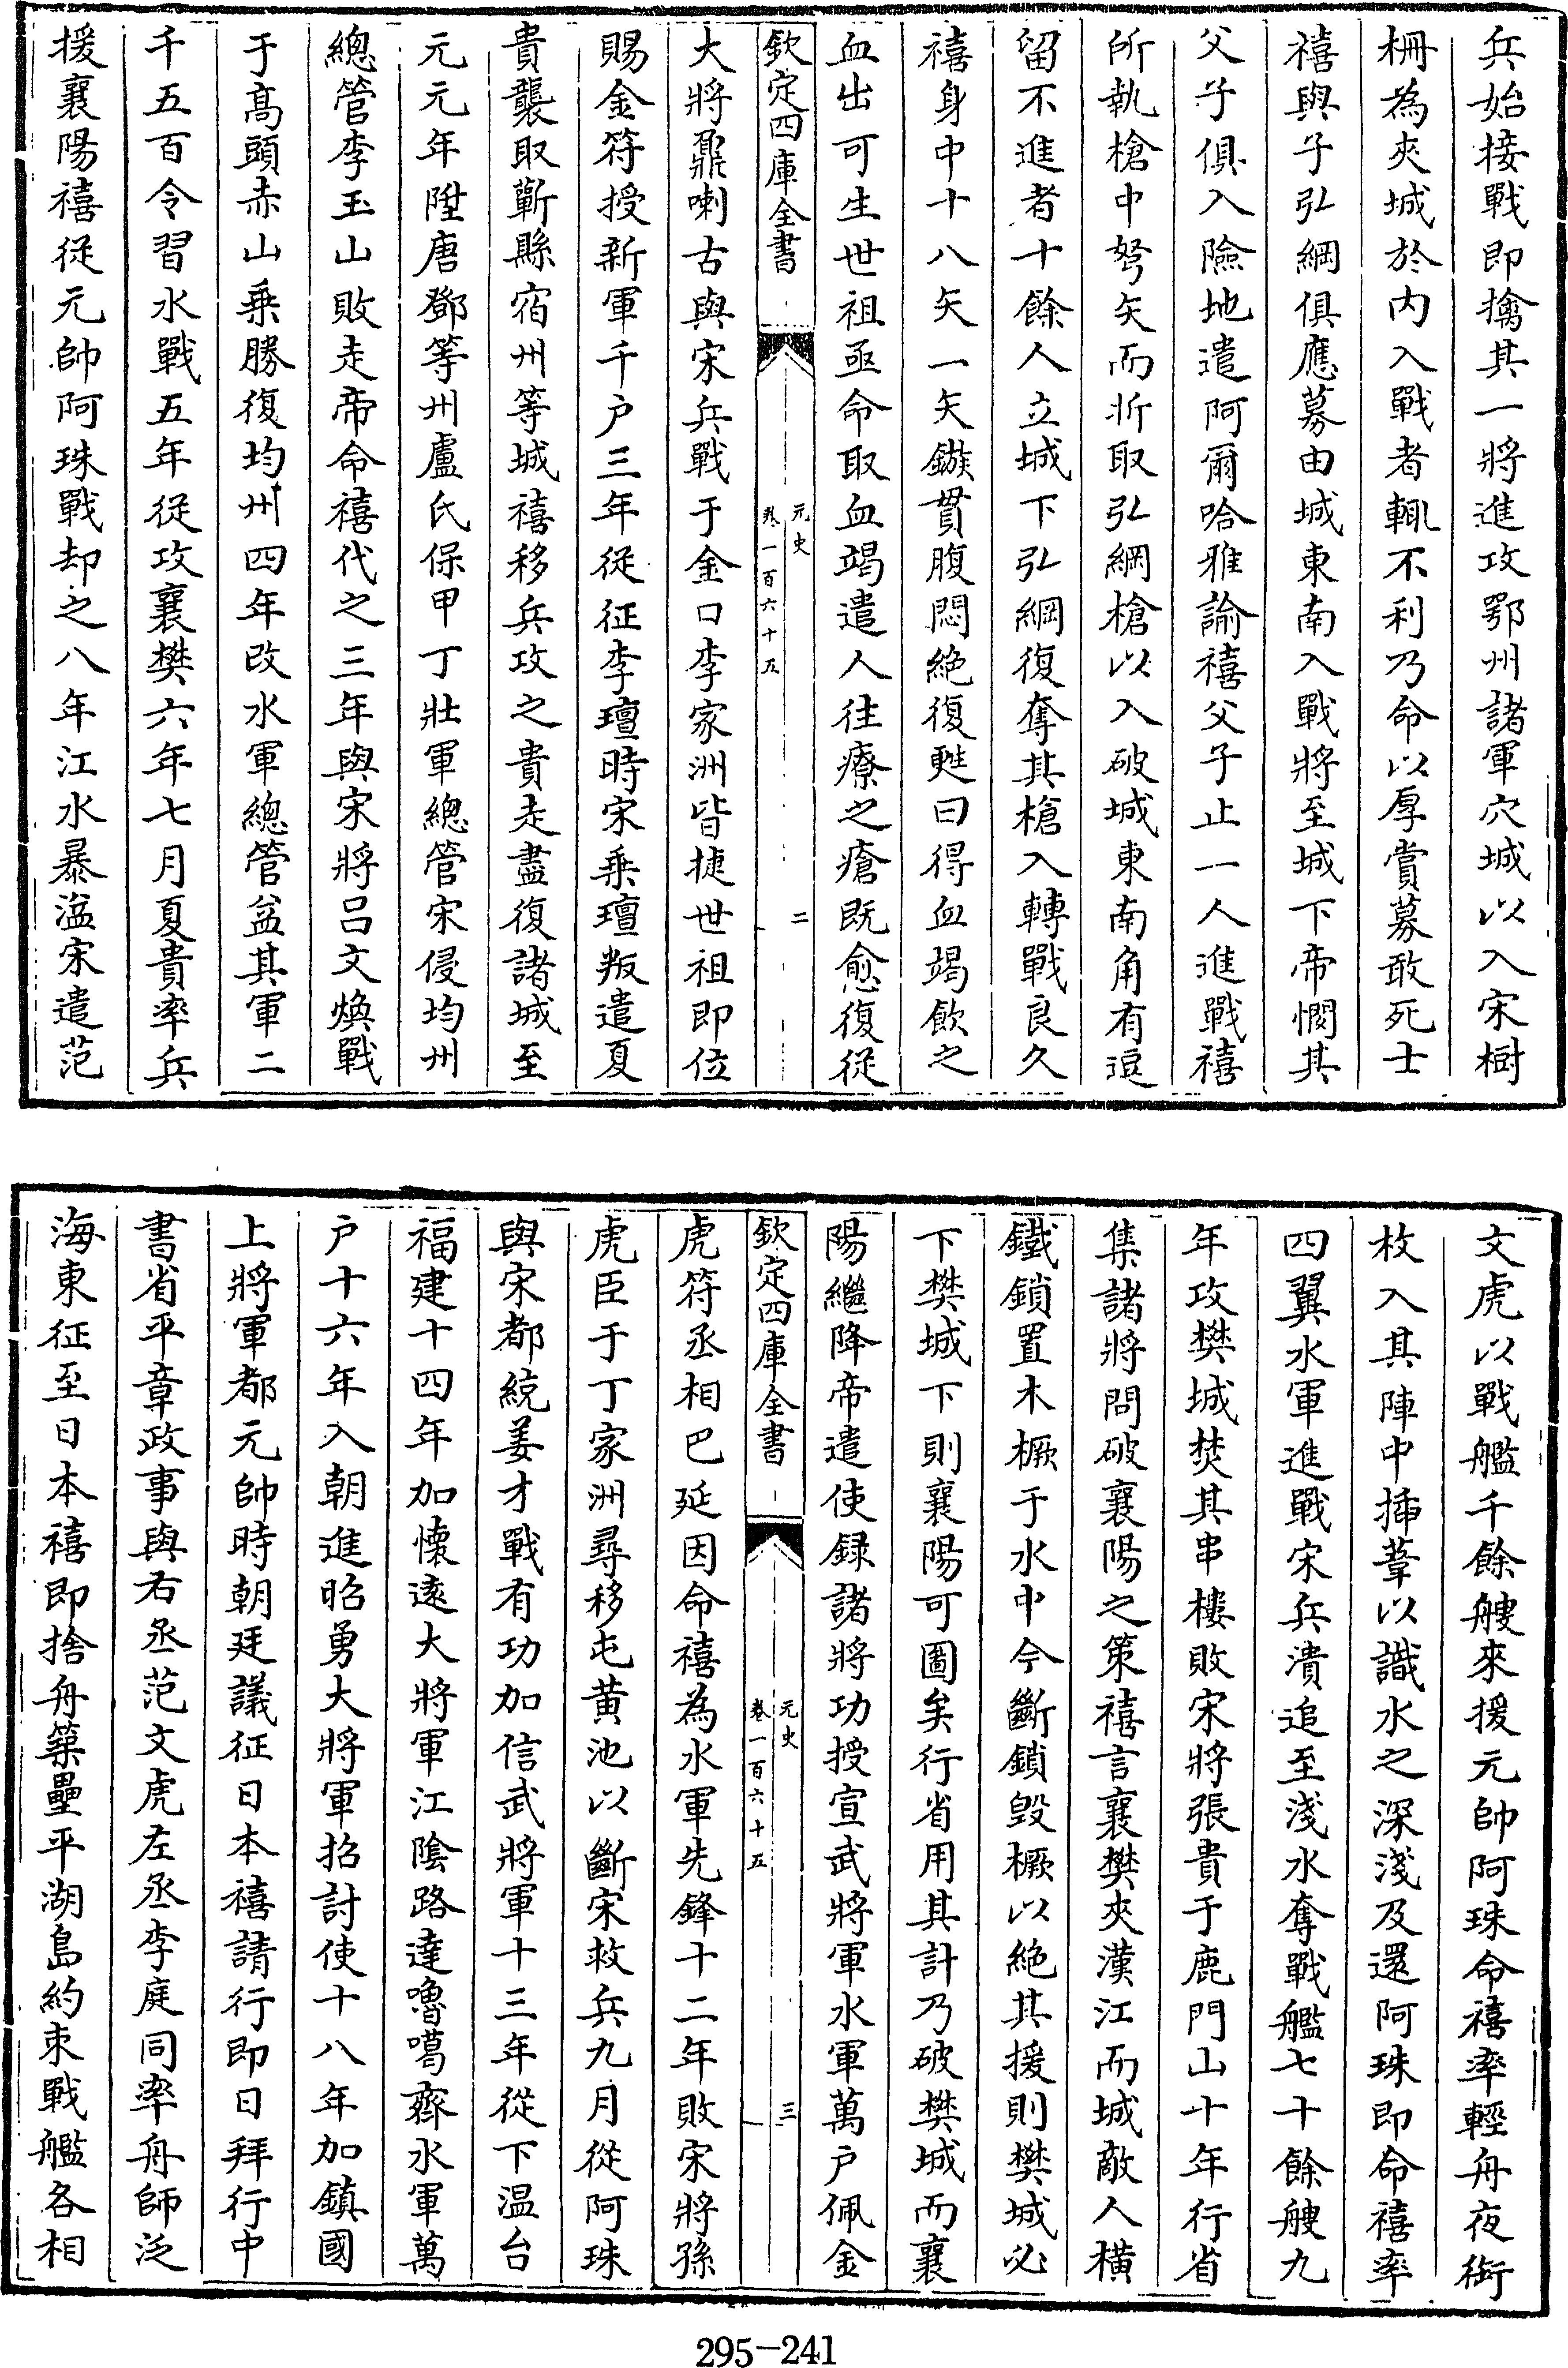 兵始接戰即擒其一將進攻鄂州諸軍穴城以入宋樹
柵為夾城於内入戰者輒不利乃命以厚賞募敢死士
禧與子弘綱俱應募由城東南入戰將至城下帝憫其
父子俱入險地遣阿爾哈雅諭禧父子止一人進戰禧
所執槍中弩矢而折取弘綱槍以入破城東南角有逗
留不進者十餘人立城下弘綱復奪其槍入轉戰良久
禧身中十八矢一矢鏃貫腹悶絶復甦曰得血竭飲之
血出可生世祖亟命取血竭遣人往療之瘡既愈復從
欽定四庫全書
元史
卷一百六十五
二
大將鼐喇古與宋兵戰于金口李家洲皆捷世祖即位
賜金符授新軍千户三年從征李璮時宋乗璮叛遣夏
貴襲取蘄縣宿州等城禧移兵攻之貴走盡復諸城至
元元年陞唐鄧等州盧氏保甲丁壯軍總管宋侵均州
總管李玉山敗走帝命禧代之三年與宋將吕文煥戰
于髙頭赤山乗勝復均州四年改水軍總管益其軍二
千五百令習水戰五年從攻襄樊六年七月夏貴率兵
援襄陽禧從元帥阿珠戰却之八年江水暴溢宋遣范
文虎以戰艦千餘艘來援元帥阿珠命禧率輕舟夜銜
枚入其陣中插葦以識水之深淺及還阿珠即命禧率
四翼水軍進戰宋兵潰追至淺水奪戰艦七十餘艘九
年攻樊城焚其串樓敗宋將張貴于鹿門山十年行省
集諸將問破襄陽之策禧言襄樊夾漢江而城敵人横
鐵鎖置木橛于水中今斷鎖毁橛以絶其援則樊城必
下樊城下則襄陽可圖矣行省用其計乃破樊城而襄
陽繼降帝遣使録諸將功授宣武將軍水軍萬户佩金
欽定四庫全書
元史
卷一百六十五
三
虎符丞相巴延因命禧為水軍先鋒十二年敗宋將孫
虎臣于丁家洲尋移屯黄池以斷宋救兵九月從阿珠
與宋都統姜才戰有功加信武將軍十三年從下温台
福建十四年加懷逺大將軍江隂路達嚕噶齊水軍萬
户十六年入朝進昭勇大將軍招討使十八年加鎮國
上將軍都元帥時朝廷議征日本禧請行即日拜行中
書省平章政事與右丞范文虎左丞李庭同率舟師泛
海東征至日本禧即捨舟築壘平湖島約束戰艦各相
295-241